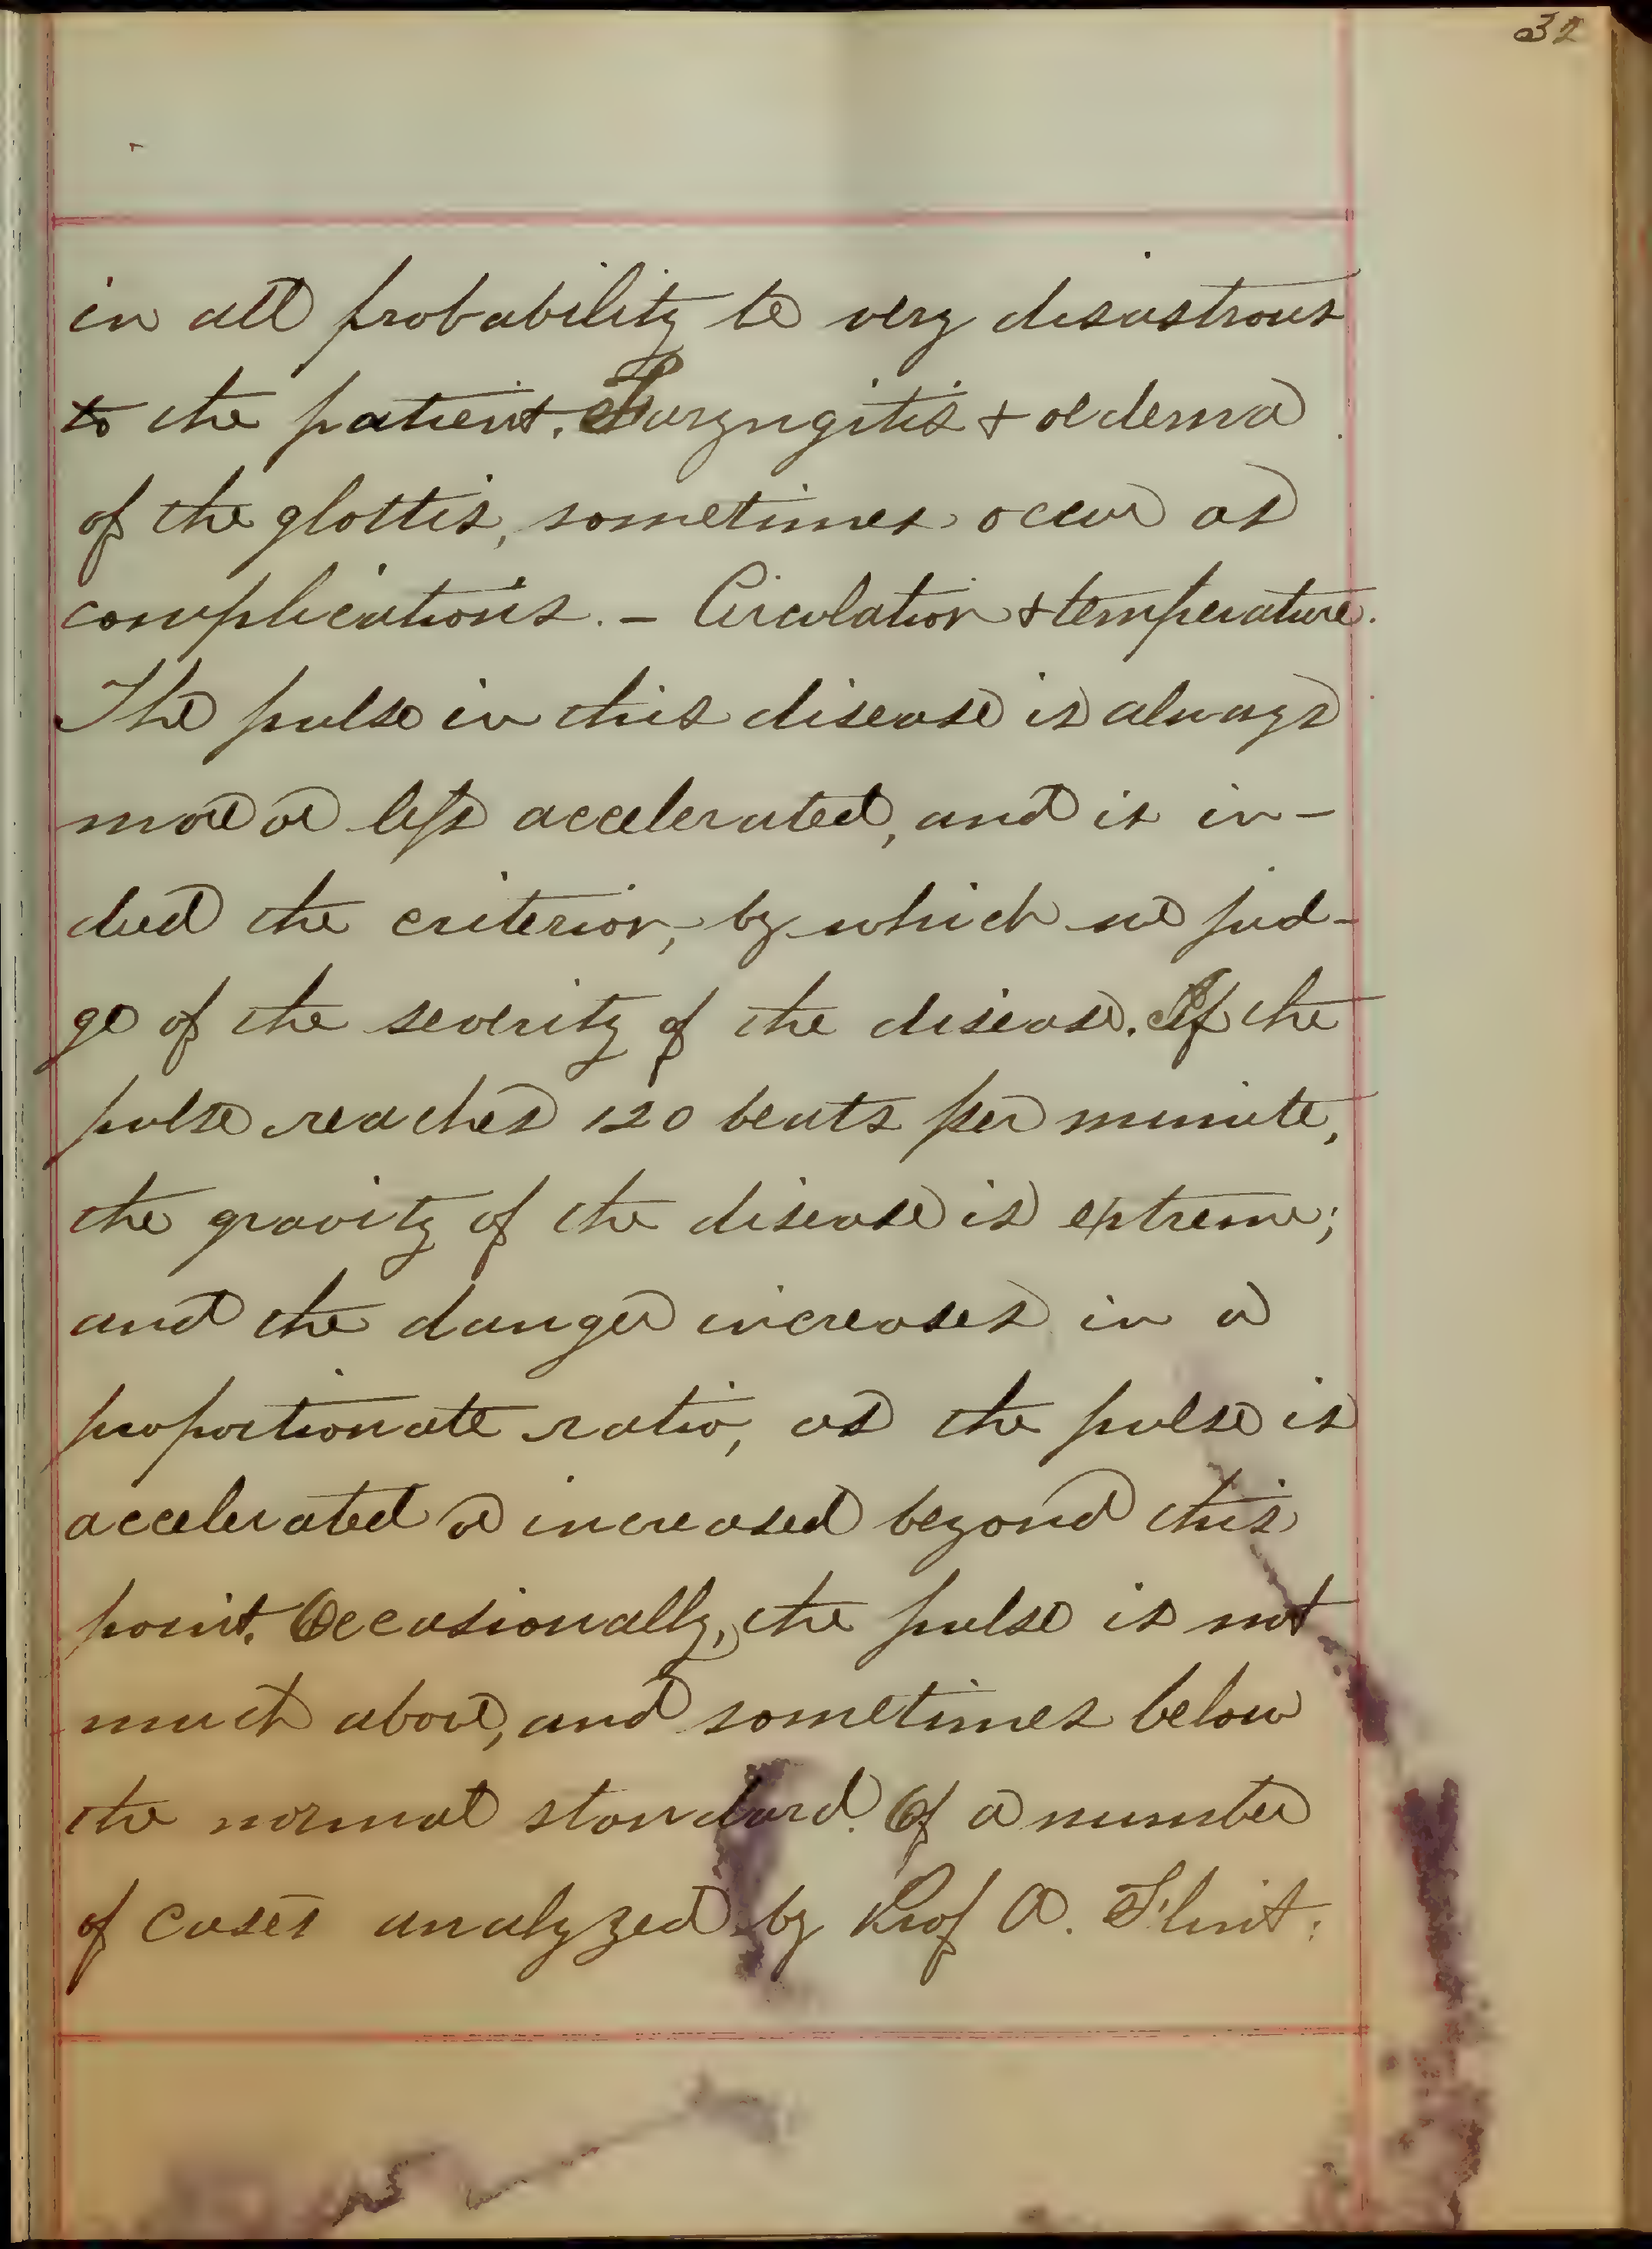 32
in all probability be very disastrous
to the patient. Laryngitis & oedema
of the glottis, sometimes occur as
complications. – Circulation & temperature.
The pulse in this disease is always
more or less accelerated, and is in-
deed the criterion, by which we jud-
ge of the severity of the disease. If the
pulse reaches 120 beats per minute,
the gravity of the disease is extreme;
and the danger increases in a
proportionate ratio, as the pulse is
accelerated or increased beyond this
point. Occasionally, the pulse is not
much above, and sometimes below
the normal standard. Of a number
of cases analyzed by Prof A. Flint;